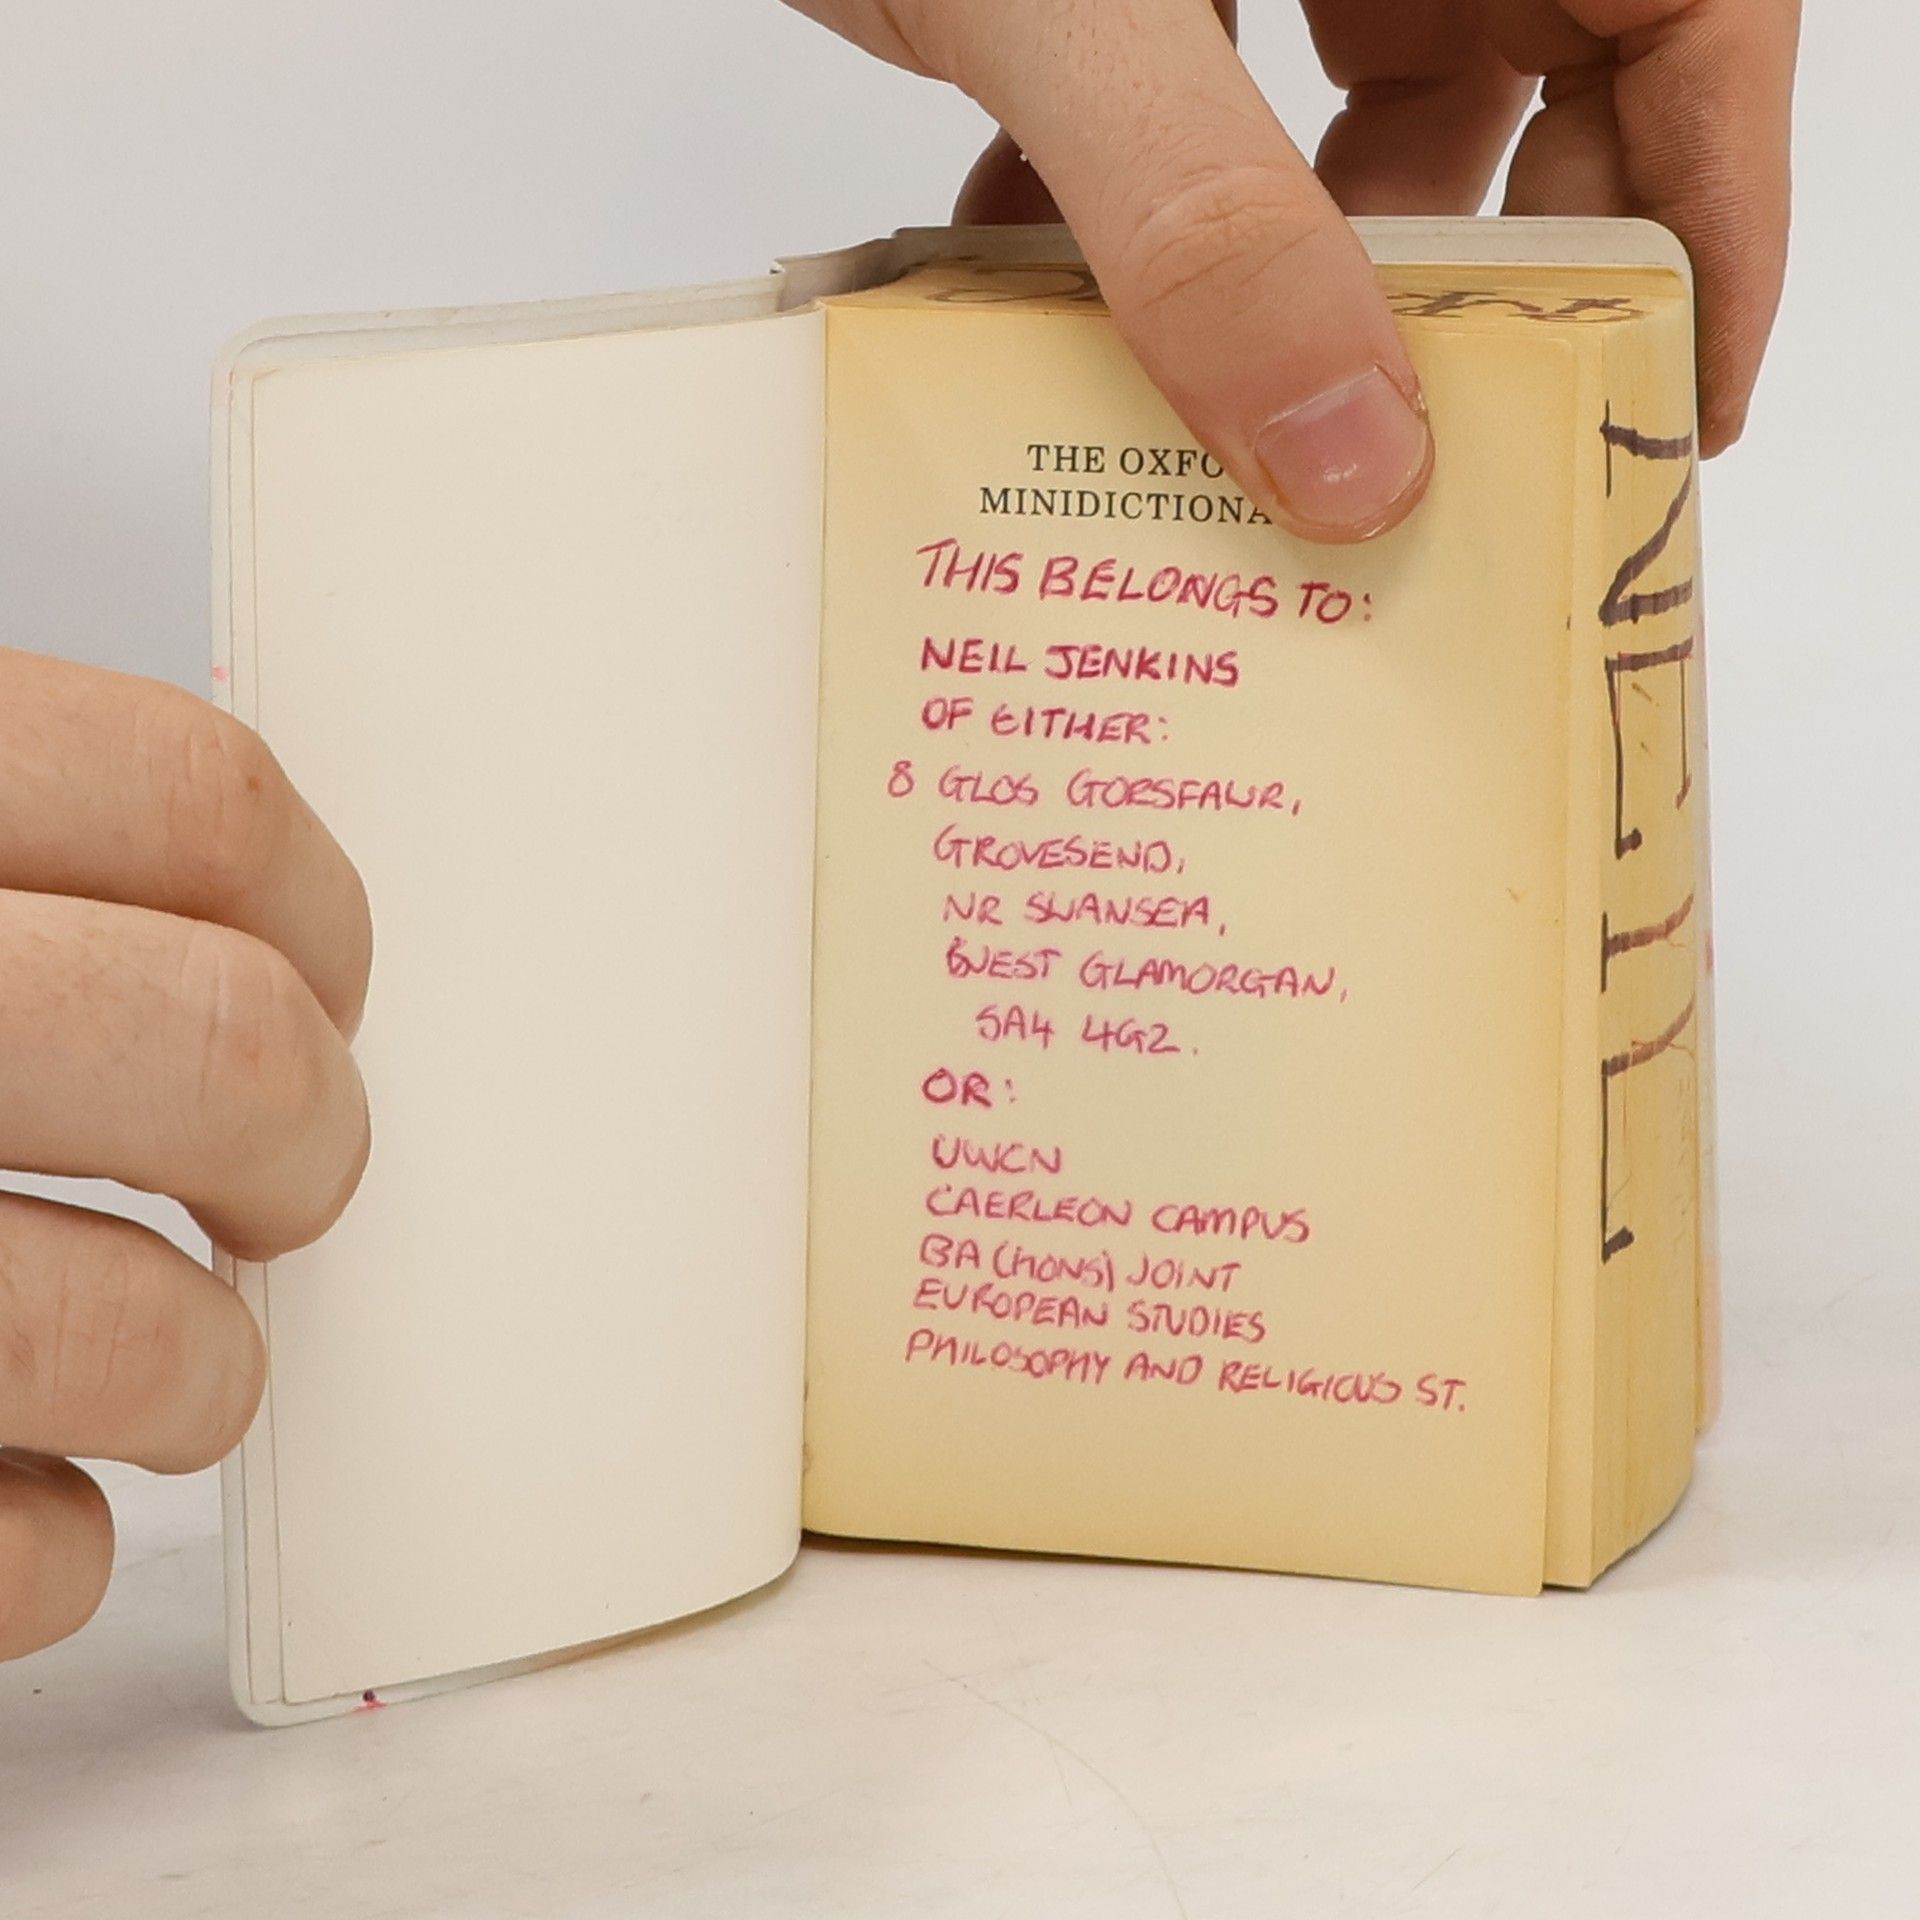 THE OXFO
MINIDICTIONA
THIS BELONGS TO:
NEIL JENKINS
OF EITHER:
8 GLOS GORSFAWR,
GROVESEND,
NR SWANSEA,
WEST GLAMORGAN,
SA4 4GZ.
OR:
UWCN
CAERLEON CAMPUS
BA (HONS) JOINT
EUROPEAN STUDIES
PHILOSOPHY AND RELIGIOUS ST.
NEIL